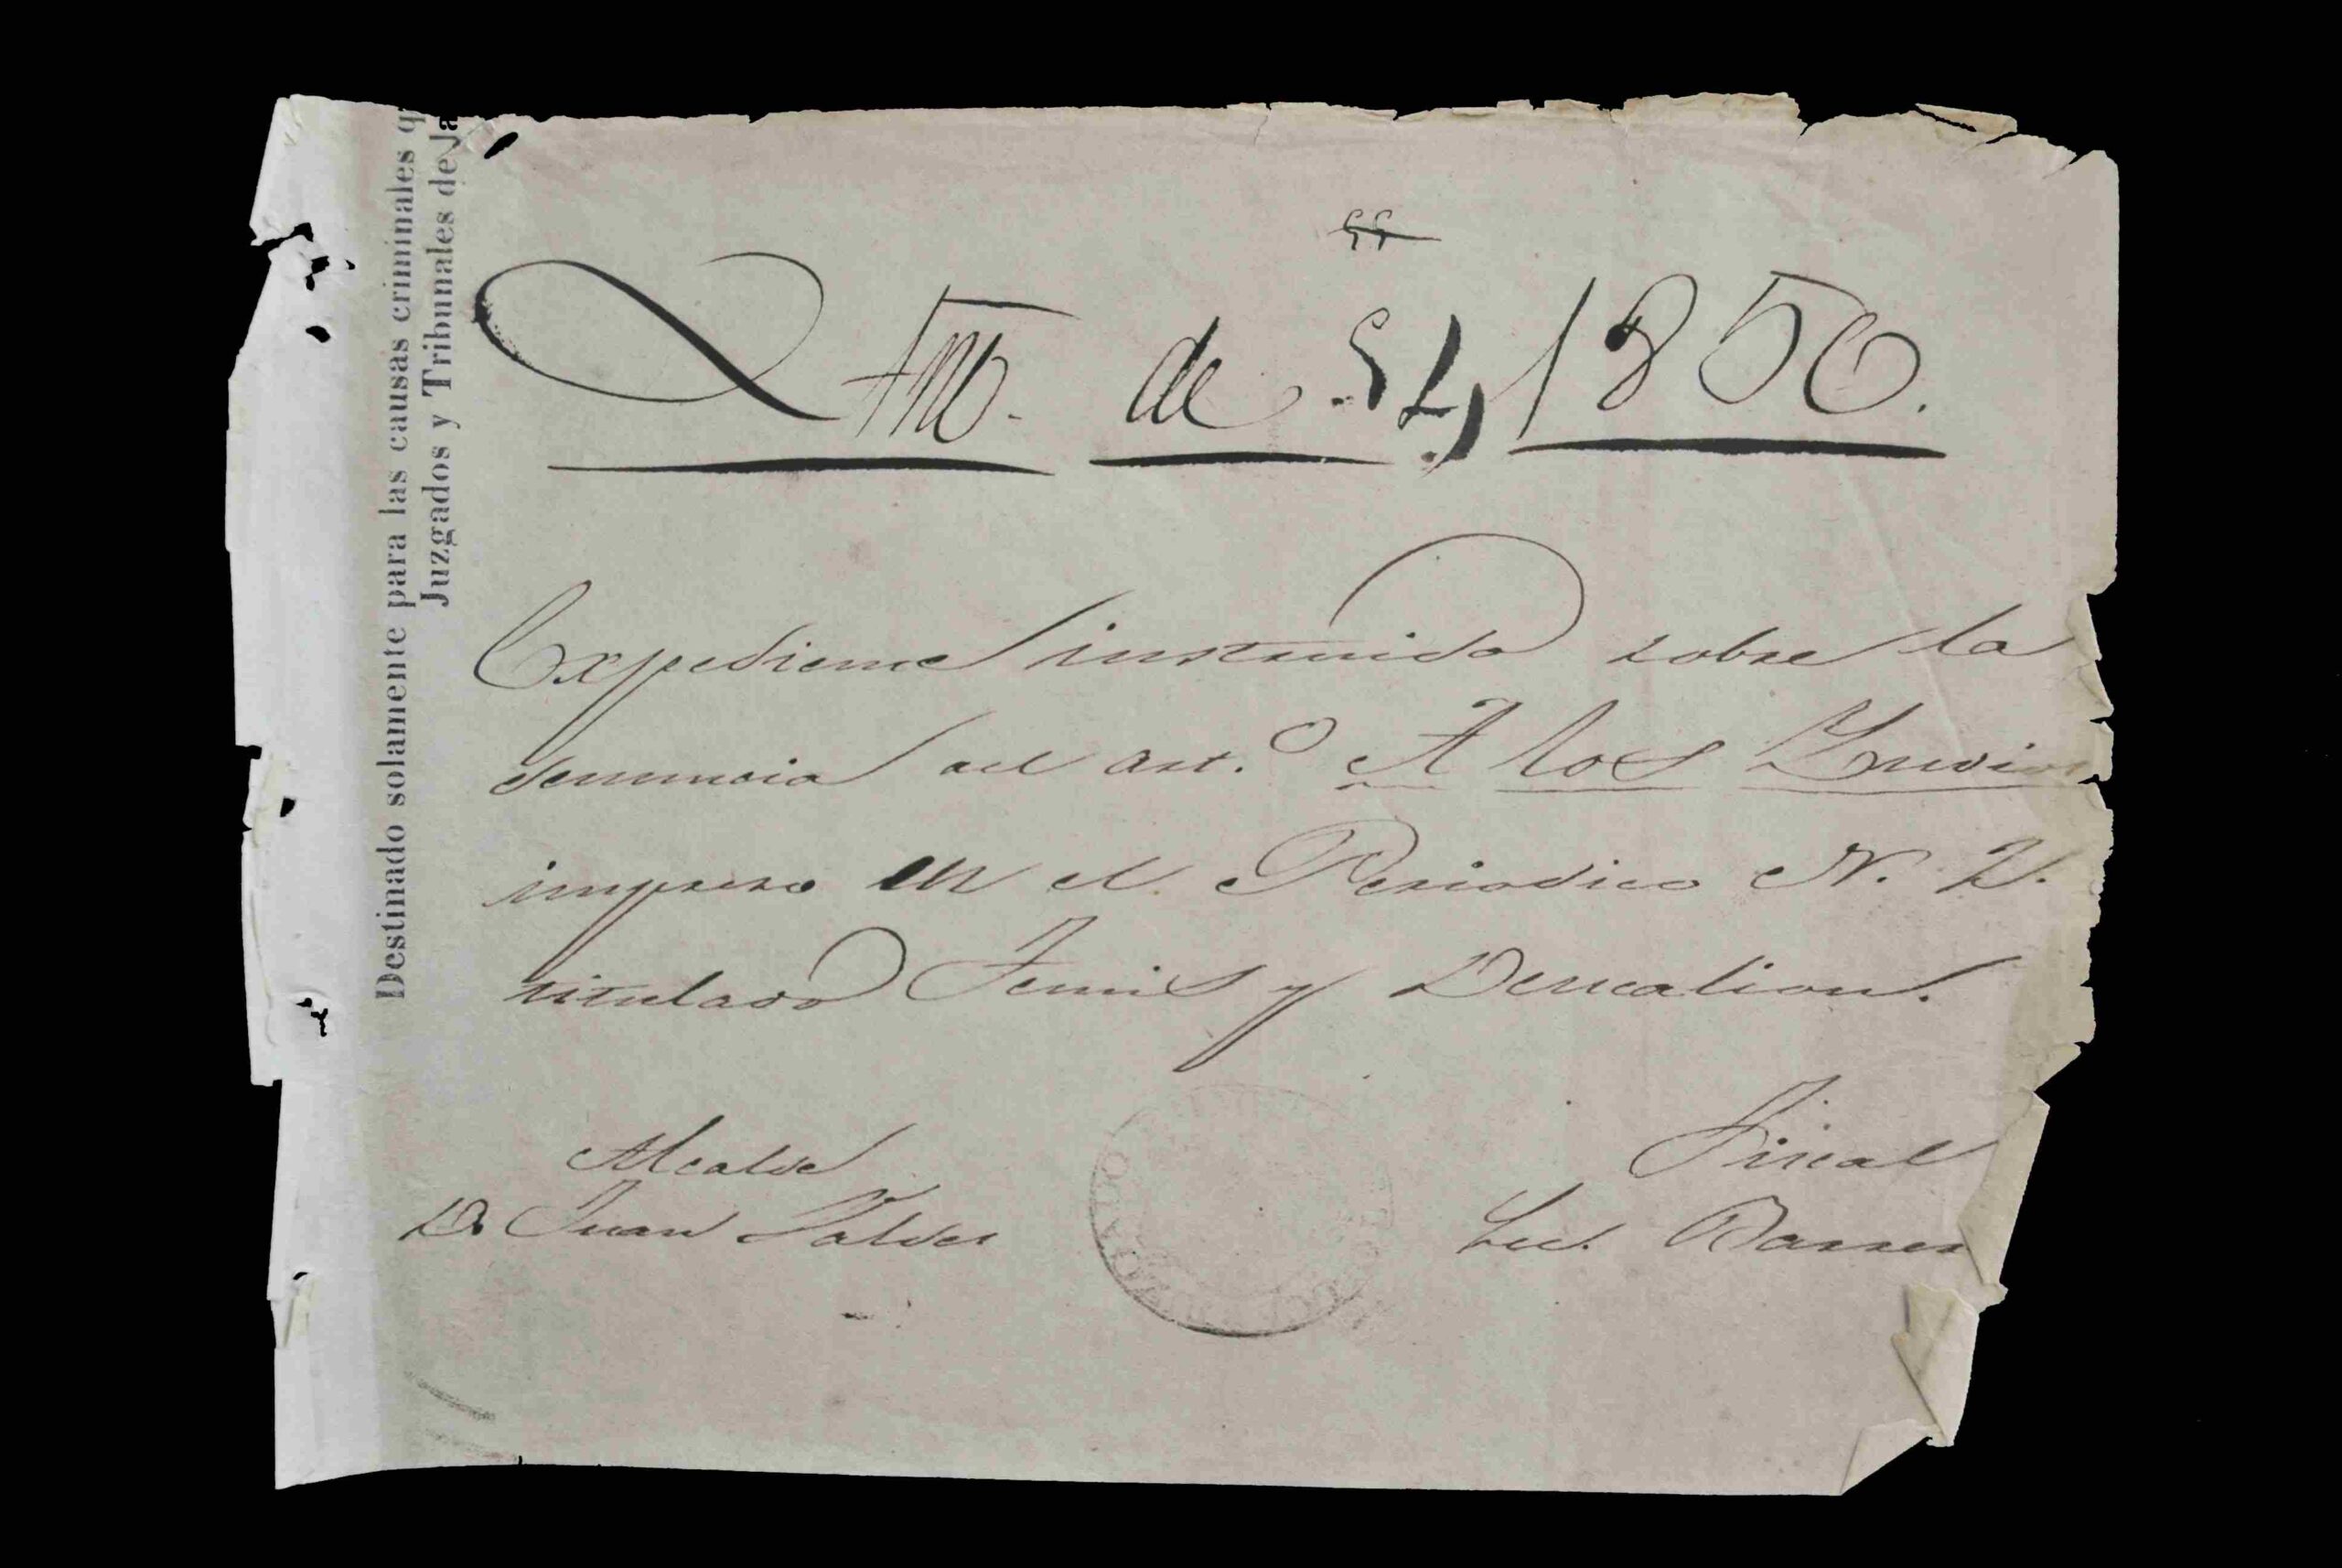 Destinado solamente para las causas criminales q
Juzgados y Tribunales de Ja
Año de 1850.
Expediente instruido sobre la
denuncia del art.o A los Indios
impreso en el Periodico N. 2.
titulado Temis y Deucalion.
Alcalde
D. Juan Valdes
Fiscal
Lic. Barros